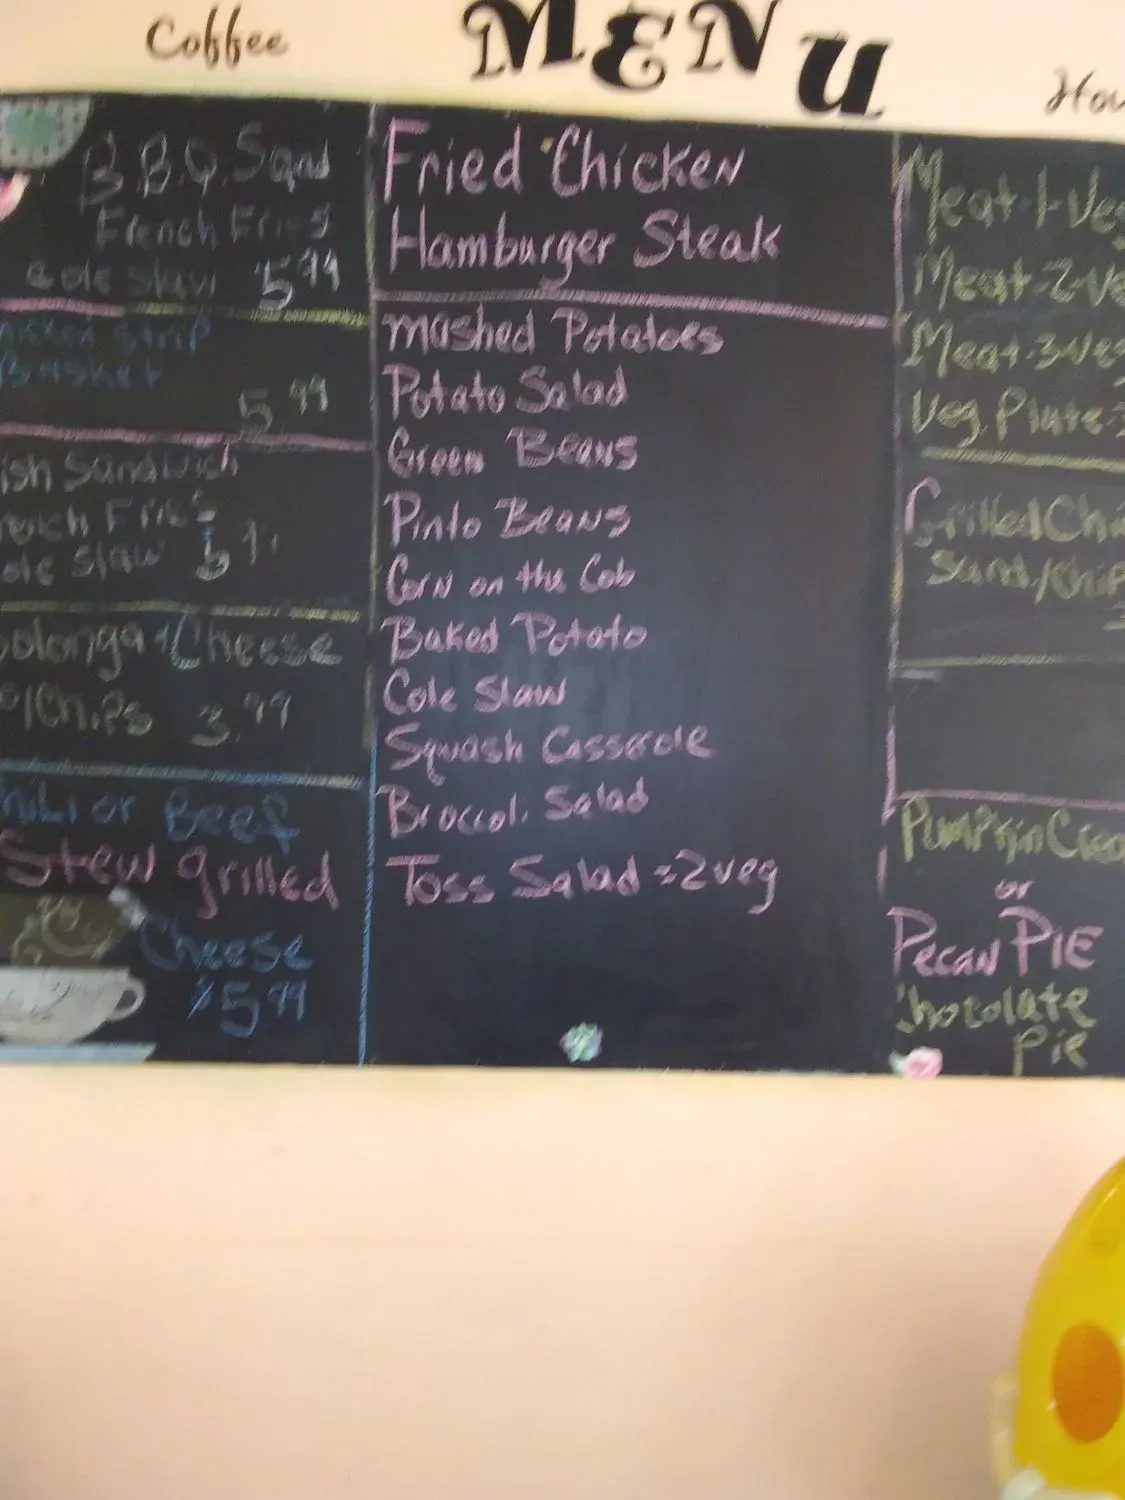 Coffee
MENU
B.B.Q. Sand
French Fries
Cole Slaw 5.99
Strip
Basket
5.99
Sandwich
Fries
Slaw
Cheese
Chips 3.99
or Beef
Stew grilled
Cheese
$5.99
Fried Chicken
Hamburger Steak
Mashed Potatoes
Potato Salad
Green Beans
Pinto Beans
Corn on the Cob
Baked Potato
Cole Slaw
Squash Casserole
Broccoli Salad
Toss Salad =2veg
Meat-1-Veg
Meat-2-Ve
Meat-3-Veg
Veg. Plate-
Grilled Chi
Sand/Chip
Pumpkin Crea
or
Pecan PIE
Chocolate
Pie